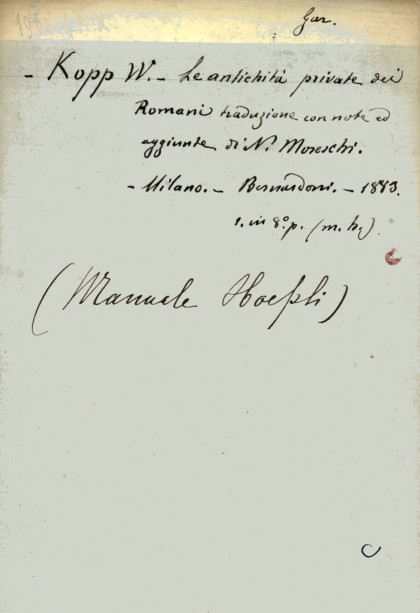 Gar.
- Kopp W. - Le antichità private dei
Romani traduzione con note ed
aggiunte di N. Moreschi.
- Milano. - Bernardoni. - 1883.
1. in 8.° p. (m. h.)
(Manuale Hoepli)